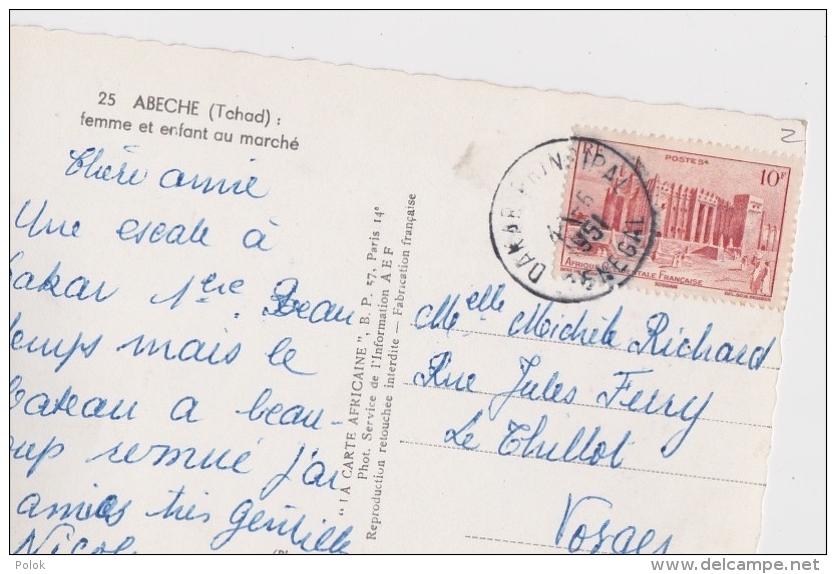 25 ABECHE (Tchad) :
femme et enfant au marché
Chère amie
Une escale à
Dakar 1ère Beau
temps mais le
bateau a beau-
oup remué j'ai
amies très gentille
Nicol
"LA CARTE AFRICAINE", B. P. 57, Paris 14e
Phot. Service de l'Information A E F
Reproduction retouchée interdite — Fabrication française
RF
POSTES
10F
AFRIQUE OCCIDENTALE FRANÇAISE
DAKAR PRINCIPAL
SENEGAL
1951
2
Melle Michèle Richard
Rue Jules Ferry
Le Thillot
Vosges
http://www.delcampe.net
Polok